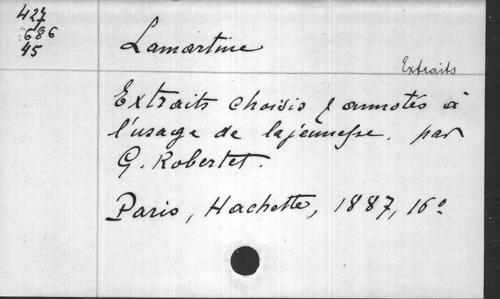 427
686
45
Lamartine
Extraits
Extraits choisis & annotés à
l'usage de la jeunesse. par
G. Robertet.
Paris, Hachette, 1887, 16º